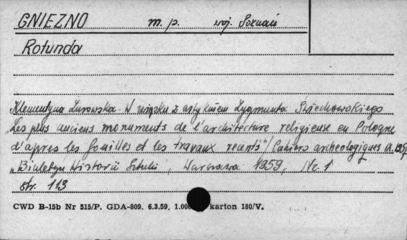 GNIEZNO m. p. woj. Poznań
Rotunda
Klementyna Żurowska. W związku z artykułem Zygmunta Święchowskiego
Les plus anciens monuments de l'architecture religieuse en Pologne
d'apres les fouilles et les travaux recents" Cahiers archeologiques
„Biuletyn Historii Sztuki", Warszawa 1959, Nr. 1
str. 113
CWD B-15b Nr 515/P. GDA-809. 6.3.59. karton 180/V.